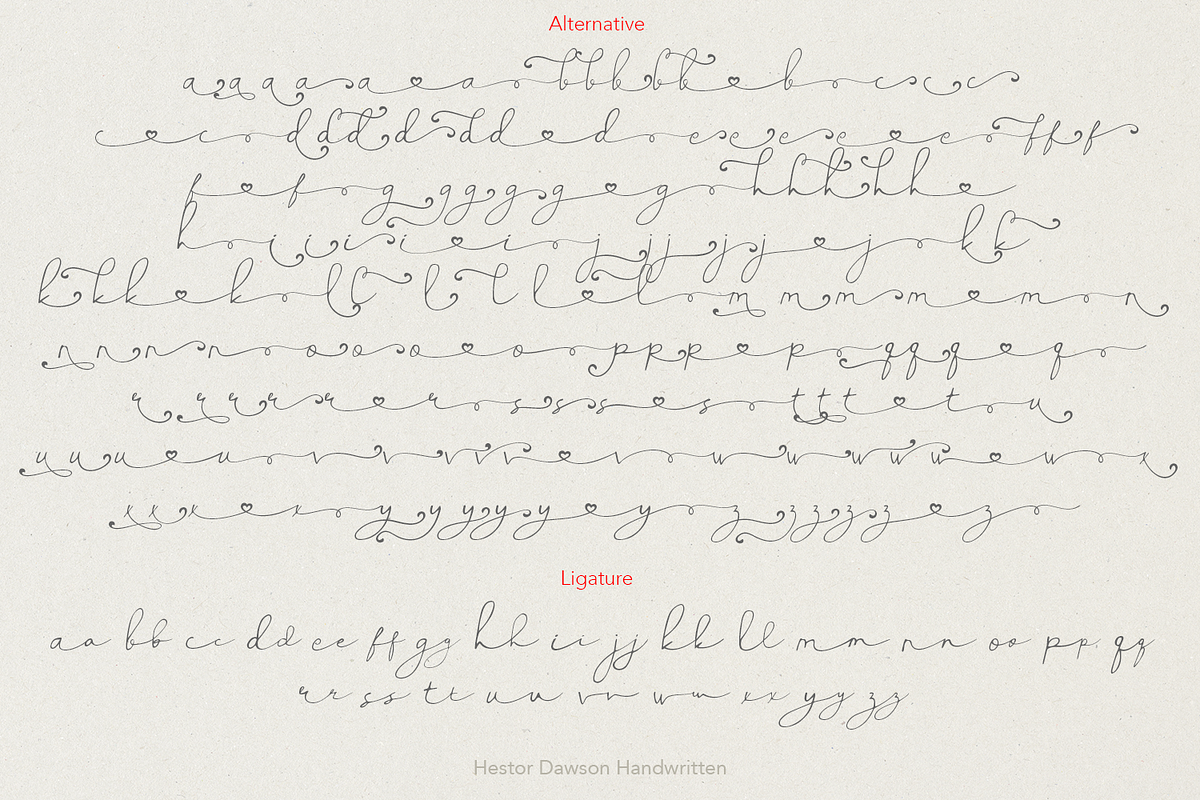 Alternative
a a a a a a a b b b b b b b c c c c
c c d d d d d d d e e e e e e f f f
f f g g g g g g h h h h h h
h i i i i i i j j j j j j k k
k k k k k l l l l l l l m m m m m n
n n n n n o o o o o p p p p p q q q q q
r r r r r r r s s s s s t t t t t u
u u u u u v v v v v v w w w w w w x
x x x x x y y y y y y z z z z z z
Ligature
aa bb cc dd ee ff gg hh ii jj kk ll mm nn oo pp qq
rr ss tt uu vv ww xx yy zz
Hestor Dawson Handwritten